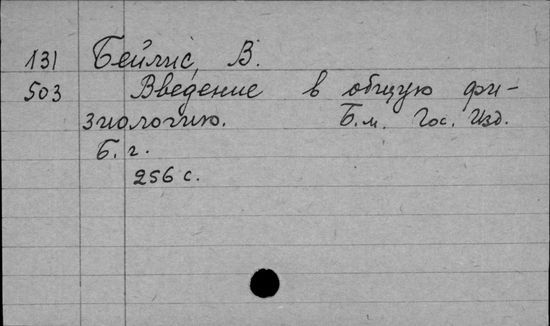 131 Бейлис, В.
503 Введение в общую фи-
зиологию. Б.м. Гос. Изд.
Б. г.
256 с.